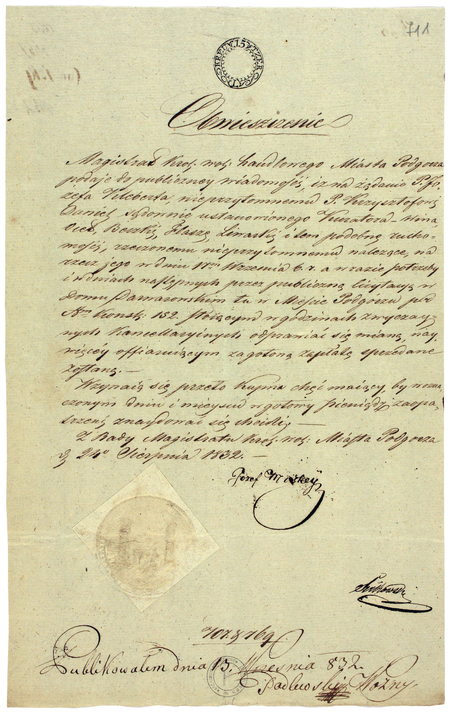 711
Obwieszczenie
Magistrat Król. wol. handlowego Miasta Podgorza
podaje do publiczney wiadomości, iż na żądanie P. Jó-
zefa nieprzytomnemu P. Krzysztofowi
Daniel sądownie ustanowionego Kuratora
Beczki, Flasze, i tem podobne rucho-
mości, rzeczonemu nieprzytomnemu należące, na
rzecz jego w dniu 17tym Września b. r. a w razie potrzeby
i w dniach następnych przez publiczną licytacyę w
Domu tu w Mieście Podgorzu pod
Nrm Konsk. 152 stoiącym w godzinach zwyczay-
nych Kancellaryinych odprawiać się mianą, nay-
więcey offiaruiącym za gotową zapłatę sprzedane
zostaną. —
Wzywaią się przeto Kupna chęć maiący, by w ozna-
czonym dniu i mieyscu w gotowy pieniądz zaopa-
trzeni znaydować się chcieli. —
Z Rady Magistratu król. wol. Miasta Podgorza
d. 24o Sierpnia 1832. —
Józef
Publikowałem dnia 13 Wrzesnia 832.
Padlewski Woźny